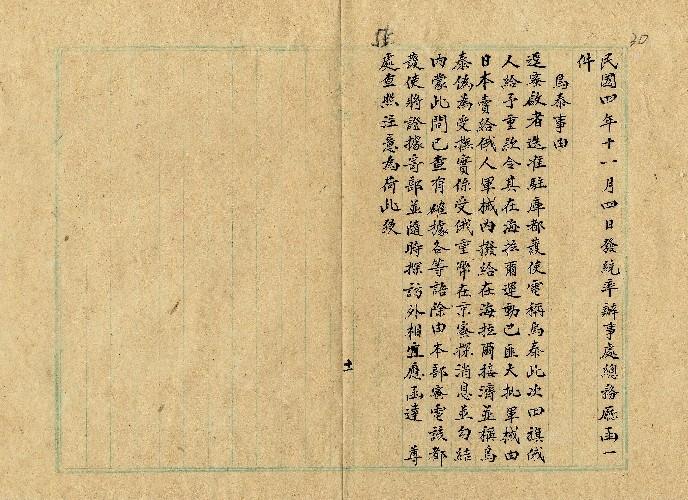 30
民國四年十一月四日發統率辦事處總務廳函一
件
烏泰事由
逕密啟者迭准駐庫都護使電稱烏泰此次回旗俄
人給予重款令其在海拉爾運動巴匪大批軍械由
日本賣給俄人軍械內撥給在海拉爾接濟並稱烏
泰偽為受撫實係受俄重幣在京密探消息並勾結
內蒙此間已查有確據各等語除由本部密電該都
護使將證據寄部並隨時探訪外相宜應函達 尊
處查照注意為荷此頌